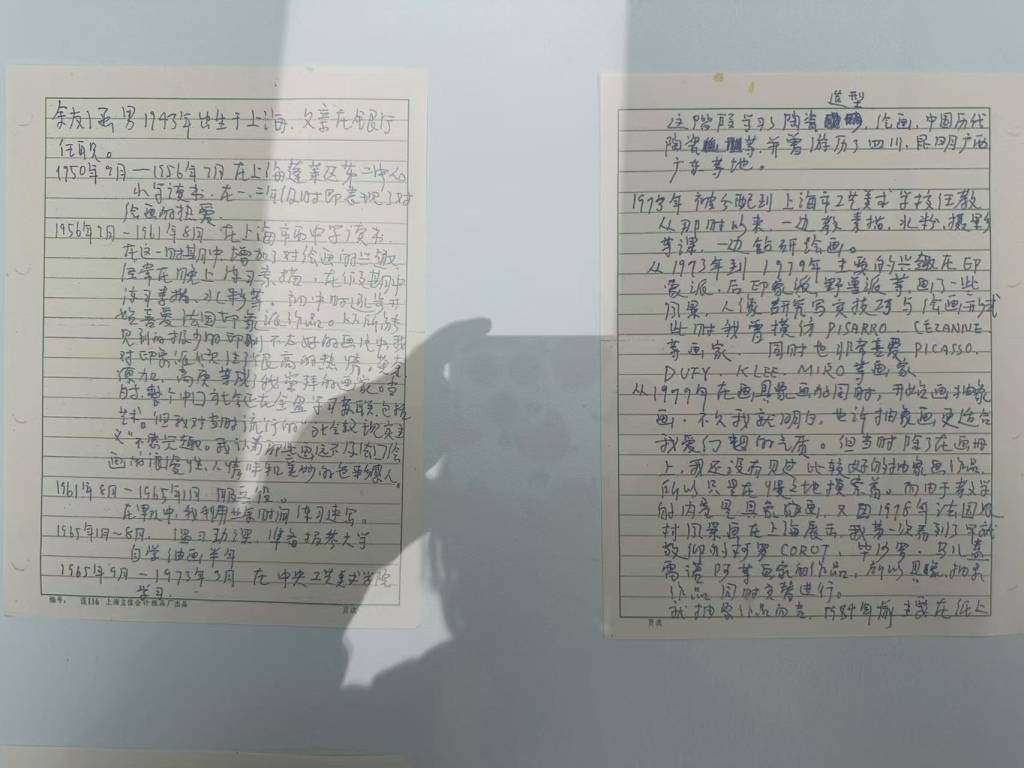 余友涵 男 1943年出生于上海、父亲在银行
任职。
1950年9月—1956年7月 在上海蓬莱区第二中心
小学读书、在一、二年级时即表现了对
绘画的热爱
1956年7月—1961年8月 在上海市西中学读书、
在这一时期中 增加了对绘画的兴趣
经常在晚上练习素描、在假期中
练习素描、水彩等。初中时代就开
始喜爱法国印象派作品。从所能
见到的很少的印刷不太好的画片中我
对印象派
高更等成了我崇拜的画家。当
时,整个中国社会还在全盘学习苏联,包括
艺术。但我对当时流行的"社会主义现实主
义"不感兴趣。我认为那些画
画的 人情味和美妙的色彩
1961年8月—1965年1月 服兵役。
在军队中,我利用业余时间练习速写。
1965年1月~8月、 复习功课、准备报考大学
自学油画半年
1965年9月—1973年3月 在中央工艺美术学院
学习.
编号: 设116 上海立信会计纸品厂出品
页次
造型
这阶段学习了陶瓷 、绘画,中国历代
陶瓷 等,并曾游历了四川、昆明、广西
广东等地。
1973年 被分配到上海市工艺美术学校任教
从那时以来、一边教素描、水粉、摄影
等课、一边钻研绘画。
从1973年到1979年 主要的兴趣在印
象派、后印象派、野兽派等.画了一些
风景、人像.研究写实技巧与绘画形式
此时我曾摸仿 PISARRO、CEZANNE
等画家、 同时也非常喜爱 PICASSO、
DUFY、KLEE、MIRO等画家
从1979年在画具象画的同时,开始画抽象
画,不久我就明白,也许抽象画更适合
我爱幻想的气质。但当时除了在画册
上,我还没有见过比较好的抽象画作品.
所以只是在慢慢地摸索着。而由于教学
的内容是具象的画,又因1978年法国农
村风景画在上海展示,我第一次看到了早就
敬仰的柯罗COROT、毕沙罗、马尔凯
雷诺阿等画家的作品,所以具象、抽象
作品同时交替进行。
就抽象作品而言、1984年前主要在纸上
页次